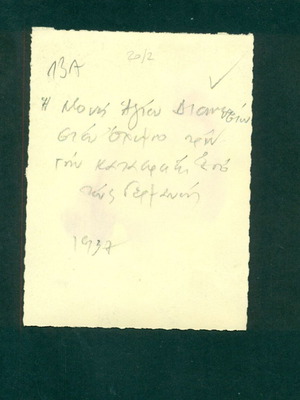 20/2
13A
Ἡ Μονή Ἁγίου Διονυσίου
στόν Ὄλυμπο πρίν
τήν καταστροφή ἀπό
τούς Γερμανούς
1937